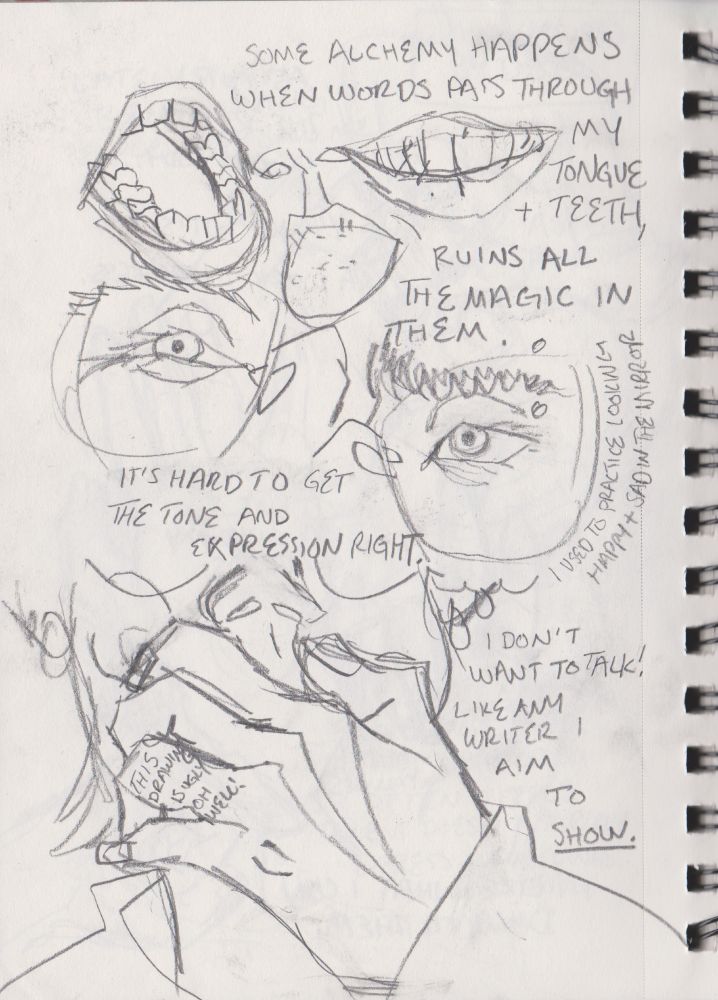 SOME ALCHEMY HAPPENS
WHEN WORDS PASS THROUGH
MY
TONGUE
+ TEETH,
RUINS ALL
THE MAGIC IN
THEM.
I USED TO PRACTICE LOOKING
HAPPY + SAD IN THE MIRROR
IT'S HARD TO GET
THE TONE AND
EXPRESSION RIGHT.
I DON'T
WANT TO TALK!
LIKE ANY
WRITER I
AIM
TO
SHOW.
THIS
DRAWING
IS UGLY
OH
WELL!